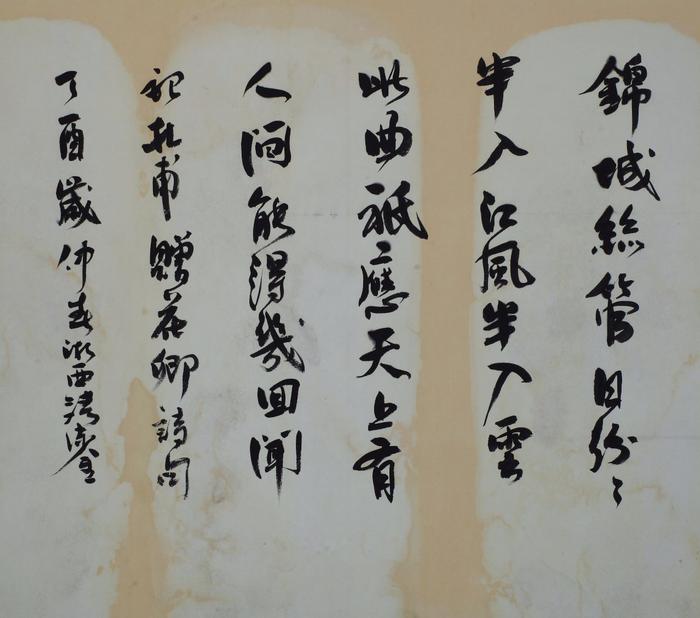 錦城絲管日紛〻
半入江風半入雲
此曲祇應天上有
人間能得幾回聞
記杜甫贈花卿詩句
丁酉歲仲春浙西